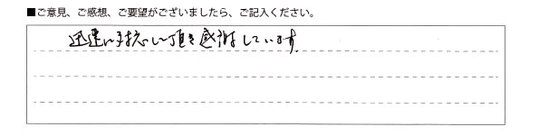 ■ご意見、ご感想、ご要望がございましたら、ご記入ください。
迅速に対応して頂き感謝しています。